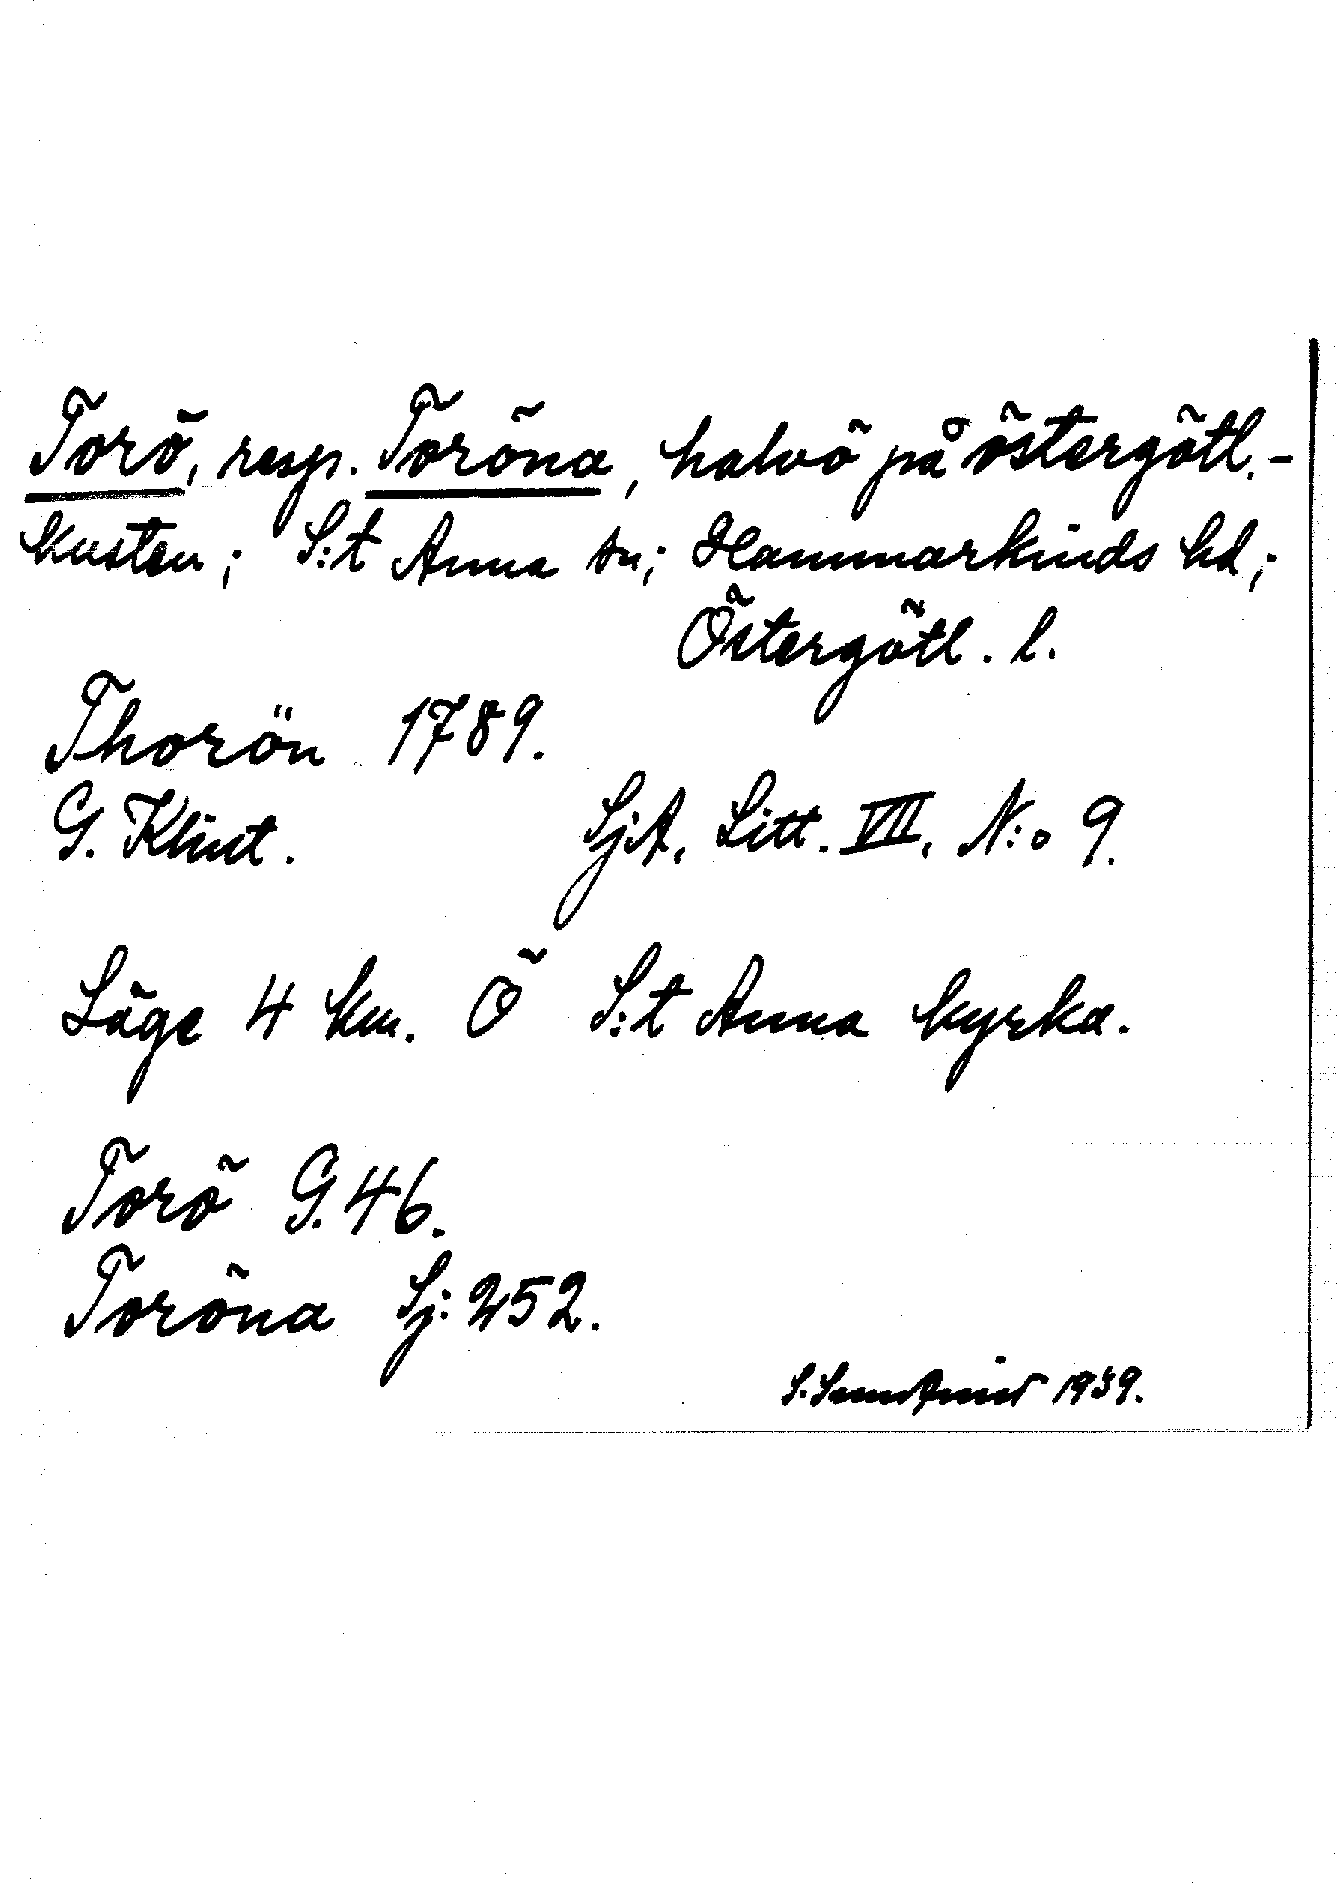 Torö, resp. Toröna, halvö på östergötl.-
kusten; S:t Anna sn; Hammarkinds hd;
Östergötl. l.
Thorön 1789.
G. Klint. SjA, Litt. VII, N:o 9.
Läge 4 km. Ö S:t Anna kyrka.
Torö G. 46.
Toröna Sj: 252.
S. 1939.